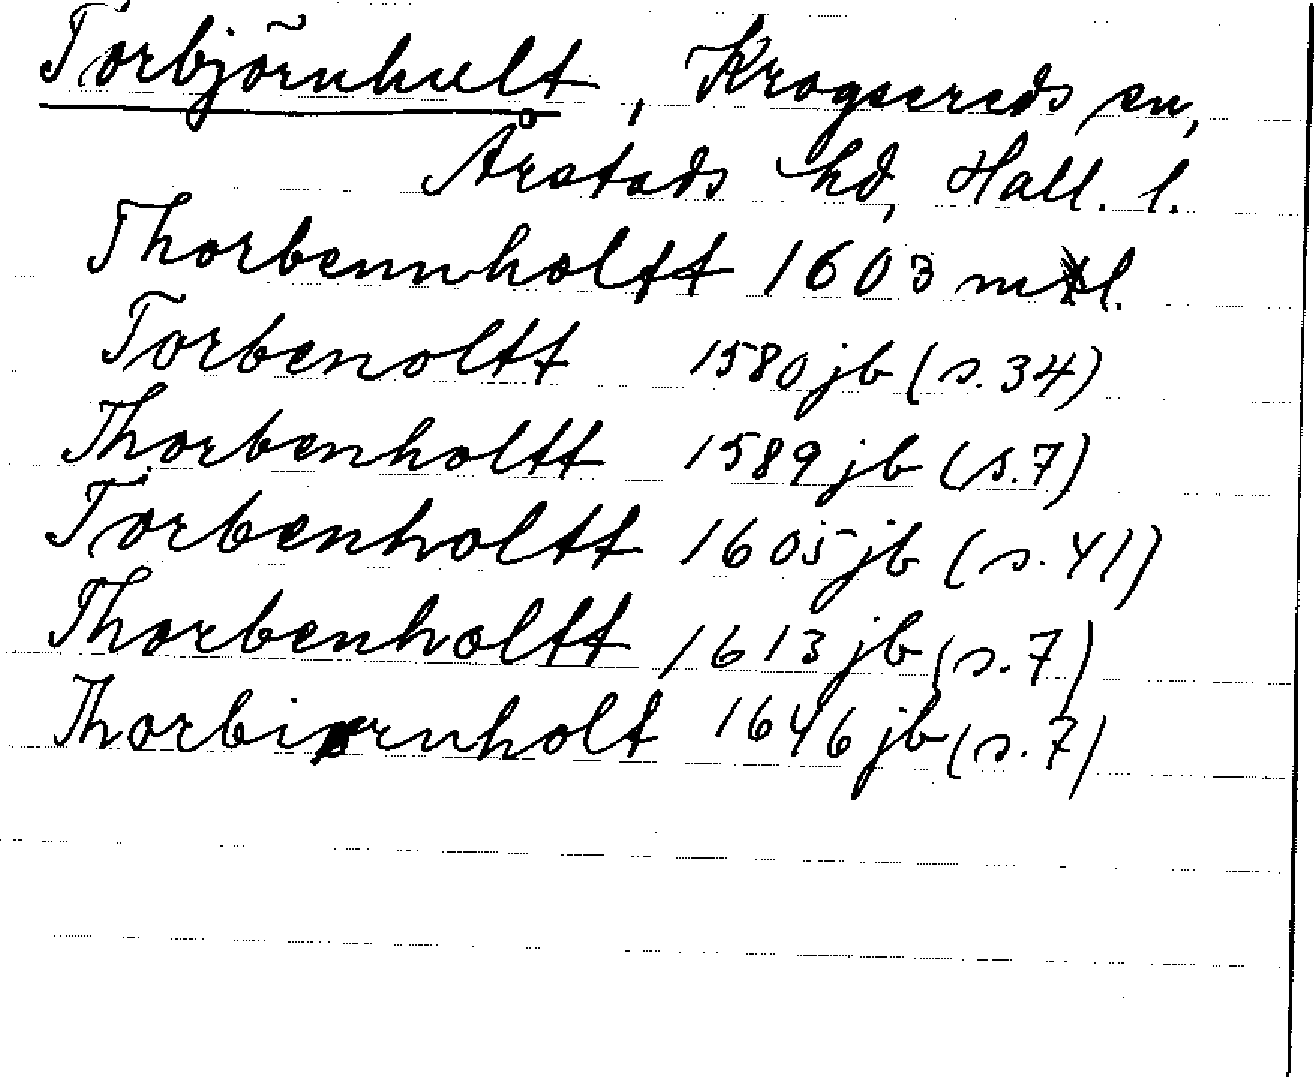 Torbjörnhult, Krogsereds sn,
Årstads hd, Hall. l.
Thorbennholtt 1603 mtl.
Torbenoltt 1580 jb (s. 34)
Thorbenholtt 1589 jb (s. 7)
Torbenholtt 1605 jb (s. 41)
Thorbenholtt 1613 jb (s. 7)
Thorbiørnholt 1646 jb (s. 7)